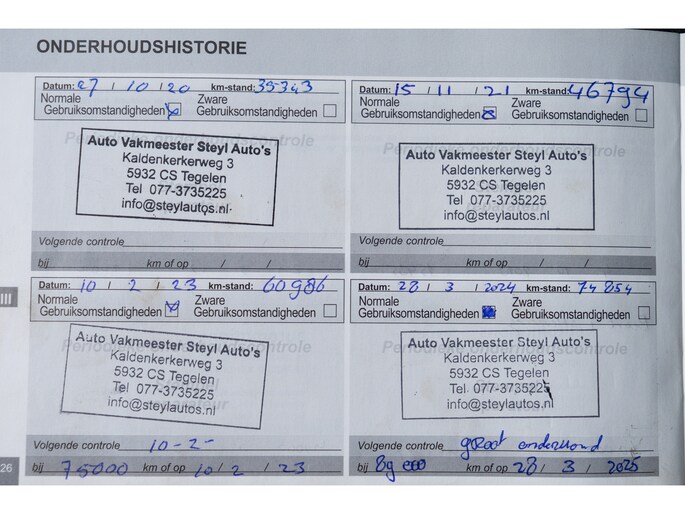 ONDERHOUDSHISTORIE
Datum: 27 / 10 / 20 km-stand: 35343
Normale Zware
Gebruiksomstandigheden Gebruiksomstandigheden
Auto Vakmeester Steyl Auto's
Kaldenkerkerweg 3
5932 CS Tegelen
Tel 077-3735225
info@steylautos.nl
Volgende controle
bij km of op / /
Datum: 15 / 11 / 21 km-stand: 46794
Normale Zware
Gebruiksomstandigheden Gebruiksomstandigheden
Auto Vakmeester Steyl Auto's
Kaldenkerkerweg 3
5932 CS Tegelen
Tel 077-3735225
info@steylautos.nl
Volgende controle
bij km of op / /
III
Datum: 10 / 2 / 23 km-stand: 60986
Normale Zware
Gebruiksomstandigheden Gebruiksomstandigheden
Auto Vakmeester Steyl Auto's
Kaldenkerkerweg 3
5932 CS Tegelen
Tel 077-3735225
info@steylautos.nl
Volgende controle 10-2-
bij 75000 km of op 10 / 2 / 23
Datum: 28 / 3 / 2024 km-stand: 74854
Normale Zware
Gebruiksomstandigheden Gebruiksomstandigheden
Auto Vakmeester Steyl Auto's
Kaldenkerkerweg 3
5932 CS Tegelen
Tel. 077-3735225
info@steylautos.nl
Volgende controle groot onderhoud
bij 89 000 km of op 28 / 3 / 2025
26